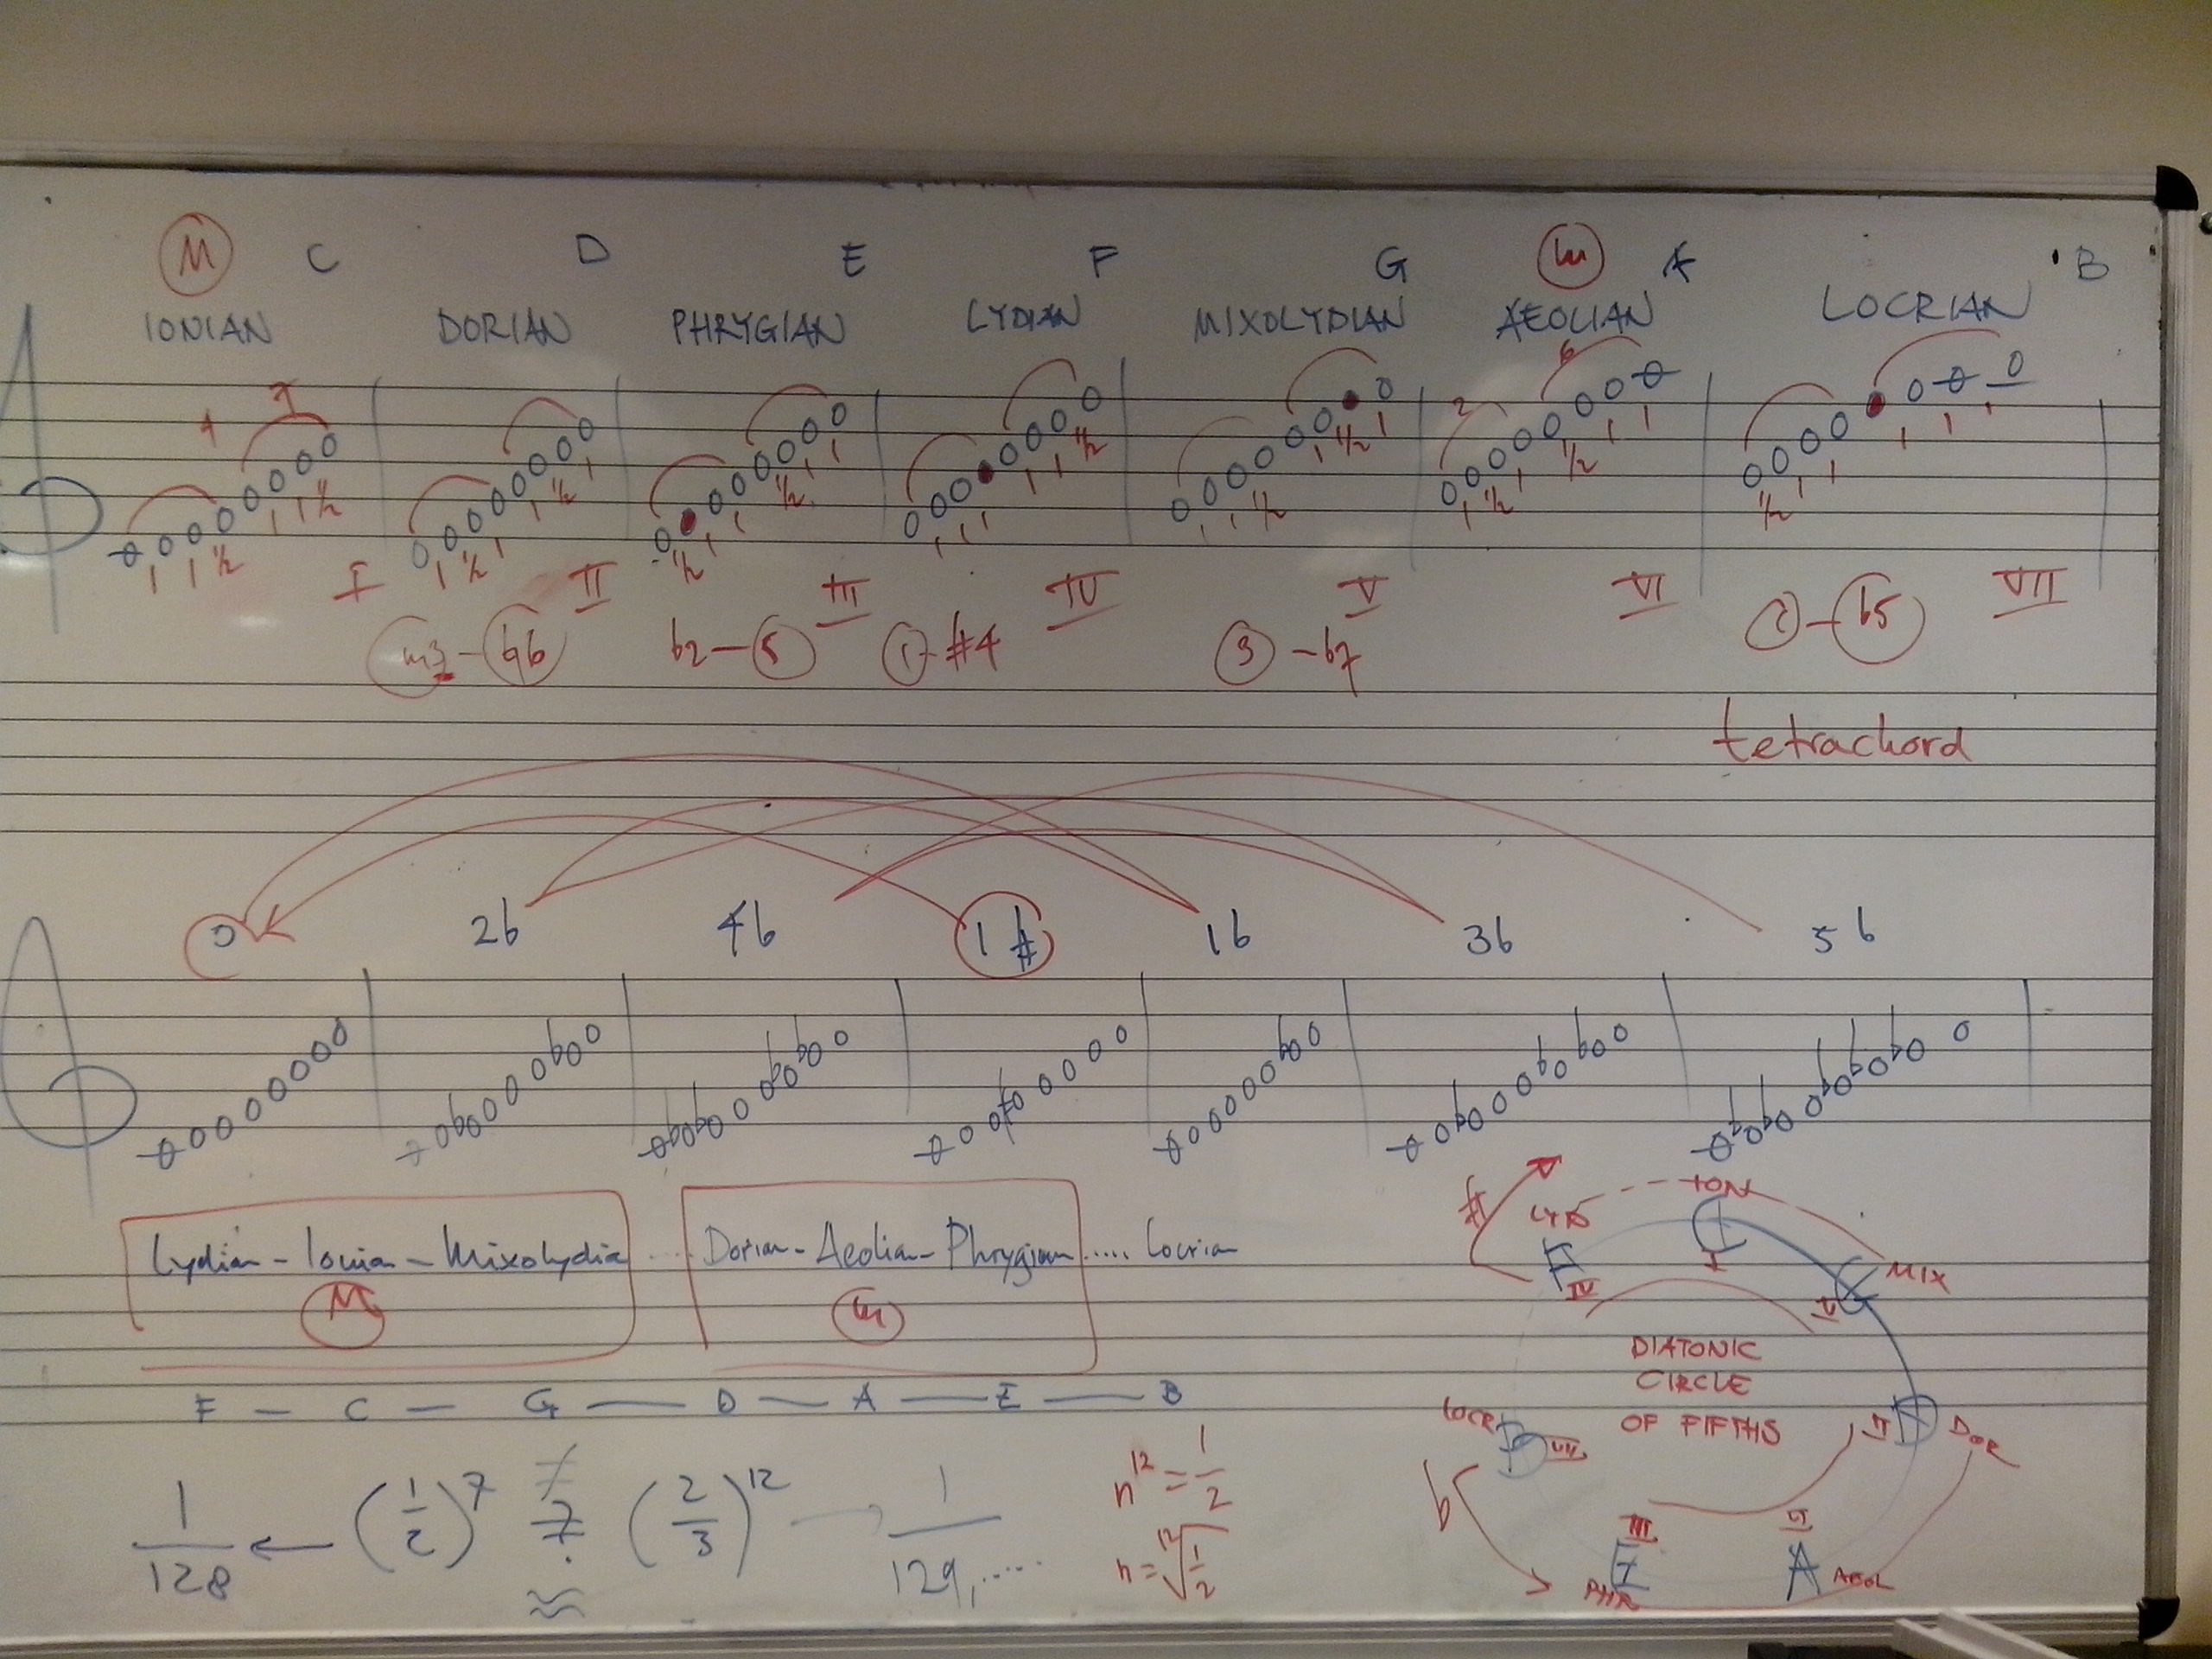 M C D E F G m A B
IONIAN DORIAN PHRYGIAN LYDIAN MIXOLYDIAN AEOLIAN LOCRIAN
1 1 ½ 1 1 ½ 1 ½ 1 1 ½ 1 ½ 1 1 ½ 1 1 1 1 1 1 1 ½ 1 1 ½ 1 ½ 1 1 ½ 1 ½ 1 1 ½ 1 1 1 1
I II III IV V VI VII
m3 - ♮6 b2 - 5 1 - #4 3 - b7 2 - b5
tetrachord
0 2b 4b 1# 1b 3b 5b
Lydian - Ionian - Mixolydia ..... Dorian - Aeolia - Phrygian ..... Locrian
M m
F - C - G - D - A - E - B
1/128 ← (1/2)^7 ≠ (2/3)^12 → 1/129,.....
≈
n^12 = 1/2
n = ¹²√1/2
LYD ION MIX
# F IV C I G V
DIATONIC
CIRCLE
OF FIFTHS
LOCR B VII II D DOR
b III VI
PHR E A AEOL